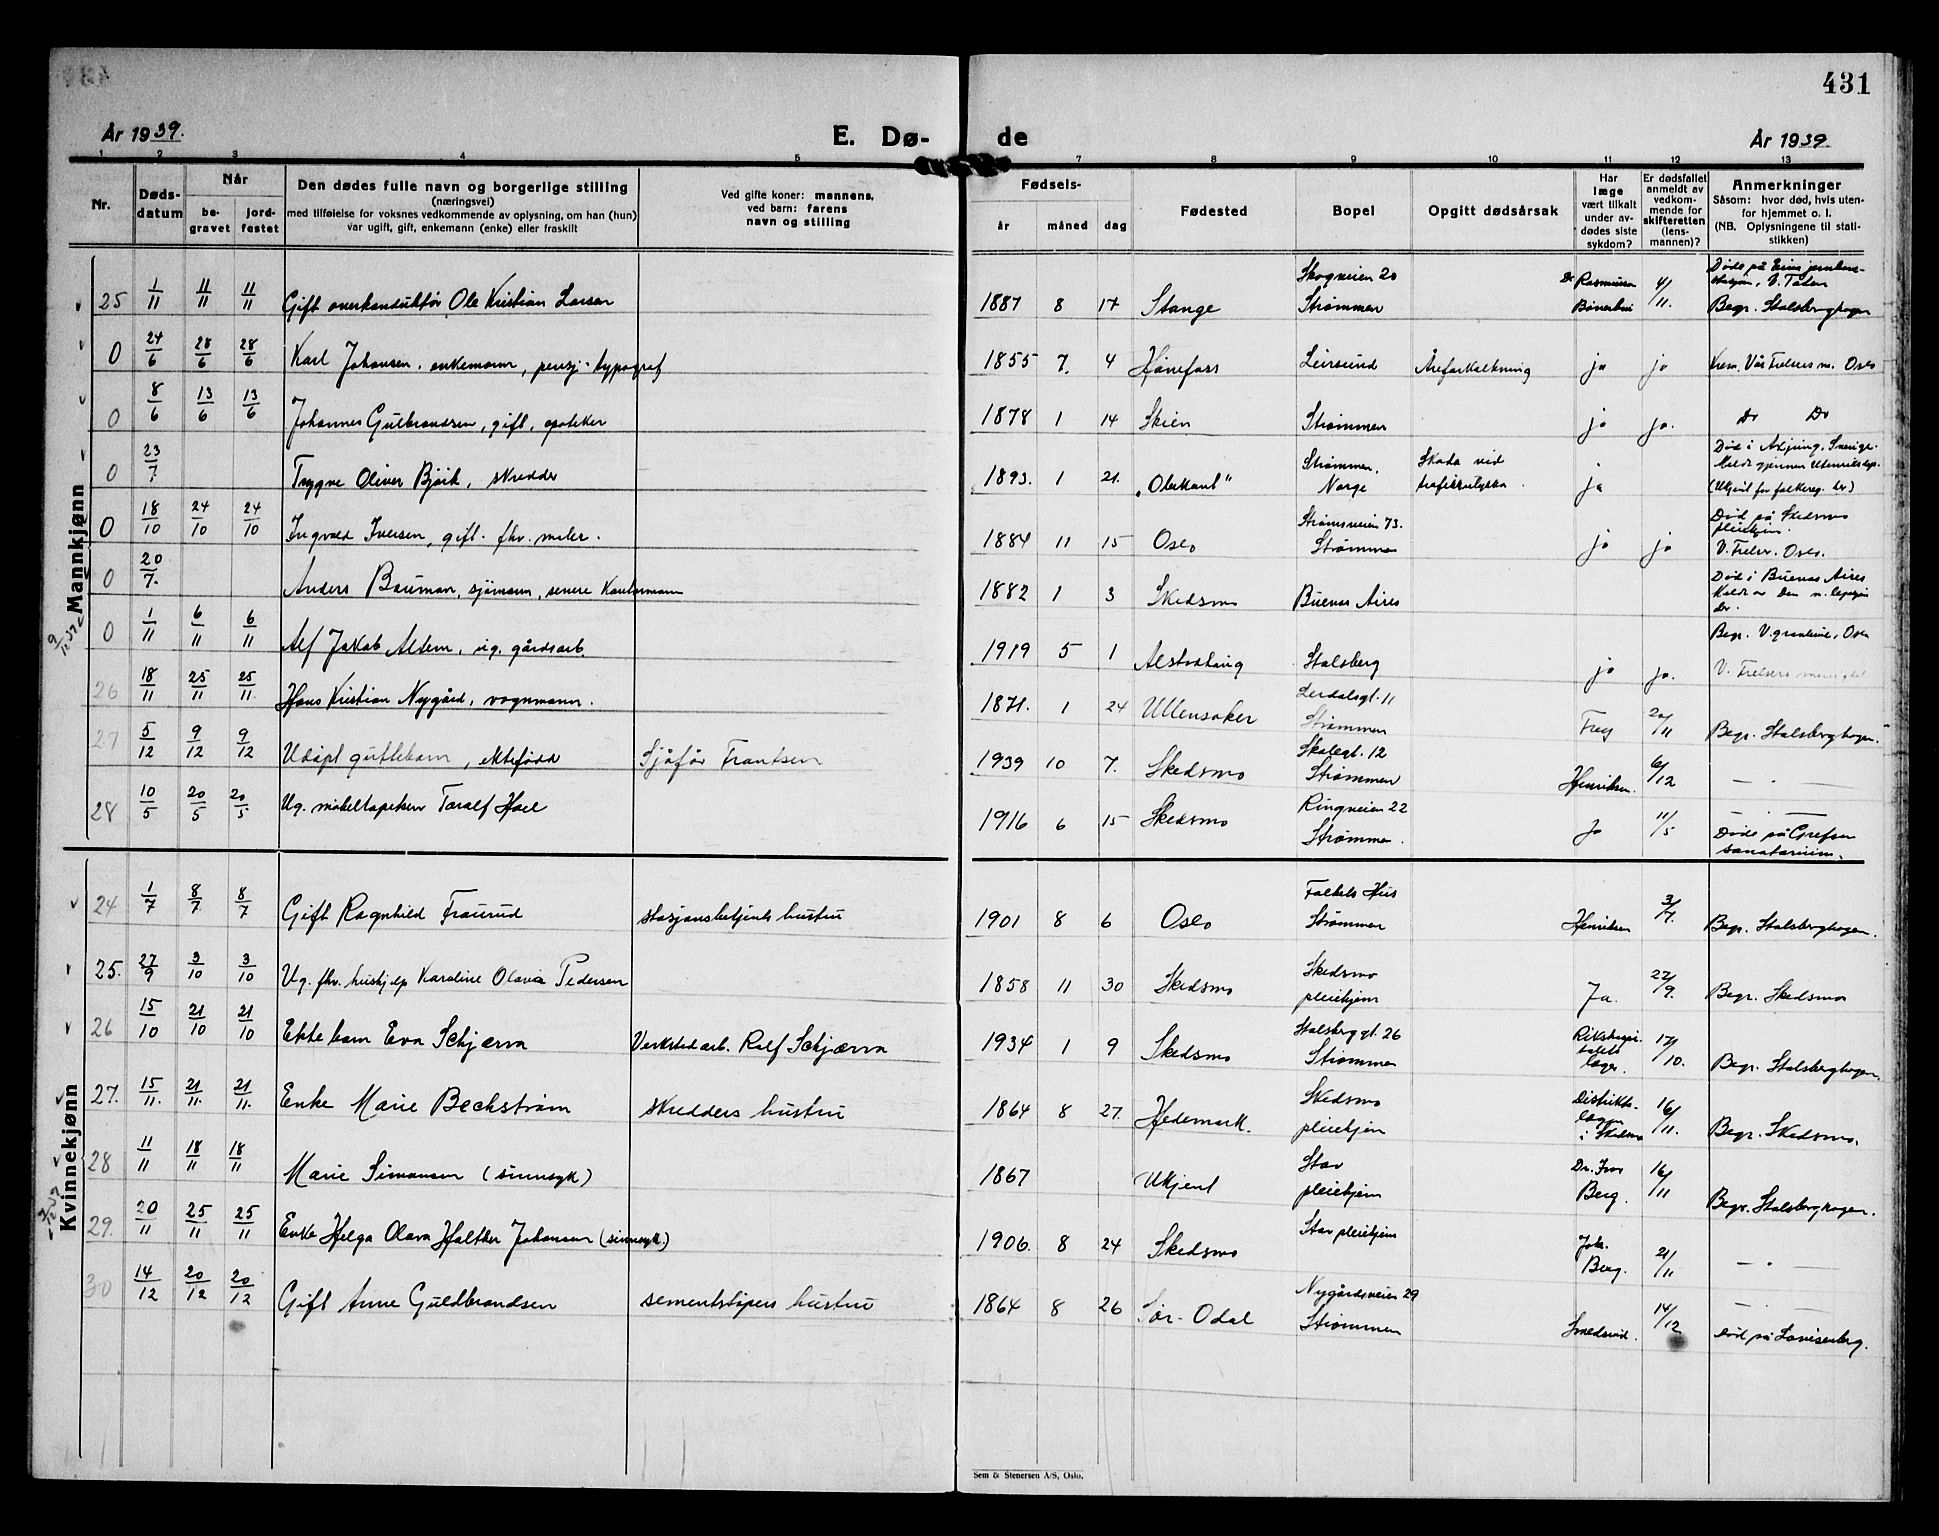 431
År 1939.
E. Dø-
de
År 1939.
1 2 3 4 5 7 8 9 10 11 12 13
Nr.
Døds-
datum
Når
be-
gravet
jord-
festet
Den dødes fulle navn og borgerlige stilling
(næringsvei)
med tilføielse for voksnes vedkommende av oplysning, om han (hun)
var ugift, gift, enkemann (enke) eller fraskilt
Ved gifte koner: mannens,
ved barn: farens
navn og stilling
Fødsels-
år måned dag
Fødested
Bopel
Opgitt dødsårsak
Har
læge
vært tilkalt
under av-
dødes siste
sykdom?
Er dødsfallet
anmeldt av
vedkom-
mende for
skifteretten
(lens-
mannen)?
Anmerkninger
Såsom: hvor død, hvis uten-
for hjemmet o. l.
(NB. Oplysningene til stati-
stikken)
Mannkjønn
25 1/11 11/11 11/11 Gift overkonduktør Ole Kristian Larsen 1887 8 17 Stange Skogveien 20 Strømmen Dr Rasmussen 4/11. Begr. Stalsberghagen
0 24/6 28/6 28/6 Karl Johansen, enkemann, pensj. typograf 1855 7. 4 Hønefoss Leirsund Åreforkalkning ja ja Krem. Vår Frelsers m. Oslo
0 8/6 13/6 13/6 Johannes Gulbrandsen, gift, apoteker 1878 1 14 Skien Strømmen ja ja. Do Do
0 23/7. Trygve Oliver Björk, skredder 1893. 1 21. Strømmen, Norge Skada vid trafikkulykka. ja Død i Sverige.
0 18/10 24/10 24/10 Ingvald Iversen, gift. fhv. maler. 1884 11 15 Oslo Strømsveien 73. Strømmen ja ja Død på Skedsmo pleiehjem. V. Frelser. Oslo.
0 20/7. Anders Bauman, sjömann, senere 1882 1 3 Skedsmo Buenos Aires Død i Buenos Aires
0 1/11 6/11 6/11 Alf Jakob Aldern, ug. gårdsarb. 1919 5 1 Stalsberg ja ja. Begr. V. Oslo V. Frelsers menighet
26 18/11 25/11 25/11. Hans Kristian Nygård, vognmann. 1871. 1 24 Ullensaker Lerdalsgt. 11 Strømmen Frey 20/11 Begr. Stalsberghagen.
27 5/12 9/12 9/12 Udöpt guttebarn, ektefödd Sjåför Frantsen 1939 10 7. Skedsmo Skolegt. 12 Strømmen Henriksen. 6/12 — " —
28 10/5 20/5 20/5 Ug. møbeltapetserer Toralf Hoel 1916 6 15 Skedsmo Ringveien 22 Strømmen. Ja 11/5 — " — Døde på Grefsen sanatorium.
Kvinnekjønn
24 1/7 8/7. 8/7 Gift Ragnhild Fraurud stasjonsbetjents hustru 1901 8 6 Oslo Folkets Hus Strømmen Henriksen 3/7. Begr. Stalsberghagen.
25. 27/9 3/10 3/10 Ug. fhv. hushjelp Karoline Olavia Pedersen 1858 11 30 Skedsmo Skedsmo pleiehjem Ja. 27/9. Begr. Skedsmo
26 15/10 21/10 21/10 Ekte barn Eva Schjærva Verkstedarb. Rolf Schjærva 1934 1 9 Skedsmo Stalsberggt. 26 Strømmen Rikshospitalets læger. 17/10. Begr. Stalsberghagen.
27. 15/11. 21/11. 21/11. Enke Marie Beckstrøm skredders hustru 1864 8 27. Hedemark. Skedsmo pleiehjem Distriktslægen i Skedsmo 16/11. Begr. Skedsmo.
28 11/11 18/11 18/11 Marie Simonsen (sinnsyk) 1867 Ukjent Stav pleiehjem Dr. Ivar Berg. 16/11 Begr. Stalsberghagen.
29. 20/11 25/11 25/11 Enke Helga Olava Halther Johansen (sinnsyk.) 1906. 8 24 Skedsmo Stav pleiehjem Berg. 21/11 — " —
30 14/12 20/12 20/12 Gift Anne Guldbrandsen sementstöpers hustru 1864 8 26 Sör-Odal Nygårdsveien 29 Strømmen Smedsrud. 14/12 — " — död på Lovisenberg.
Sem & Stenersen A/S, Oslo.